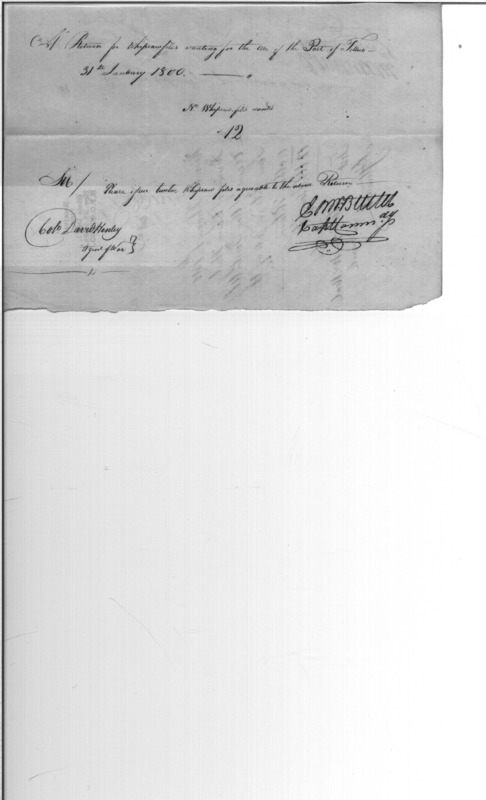 A Return for Whipsaw files wanting for the use of the Post of Tellico
31st January 1800.
No Whipsaw files wanted
12
Sir/ Please issue twelve Whipsaw files agreeable to the above Return
Colo David Henley
Agent of War
E Butler
Capt Comm